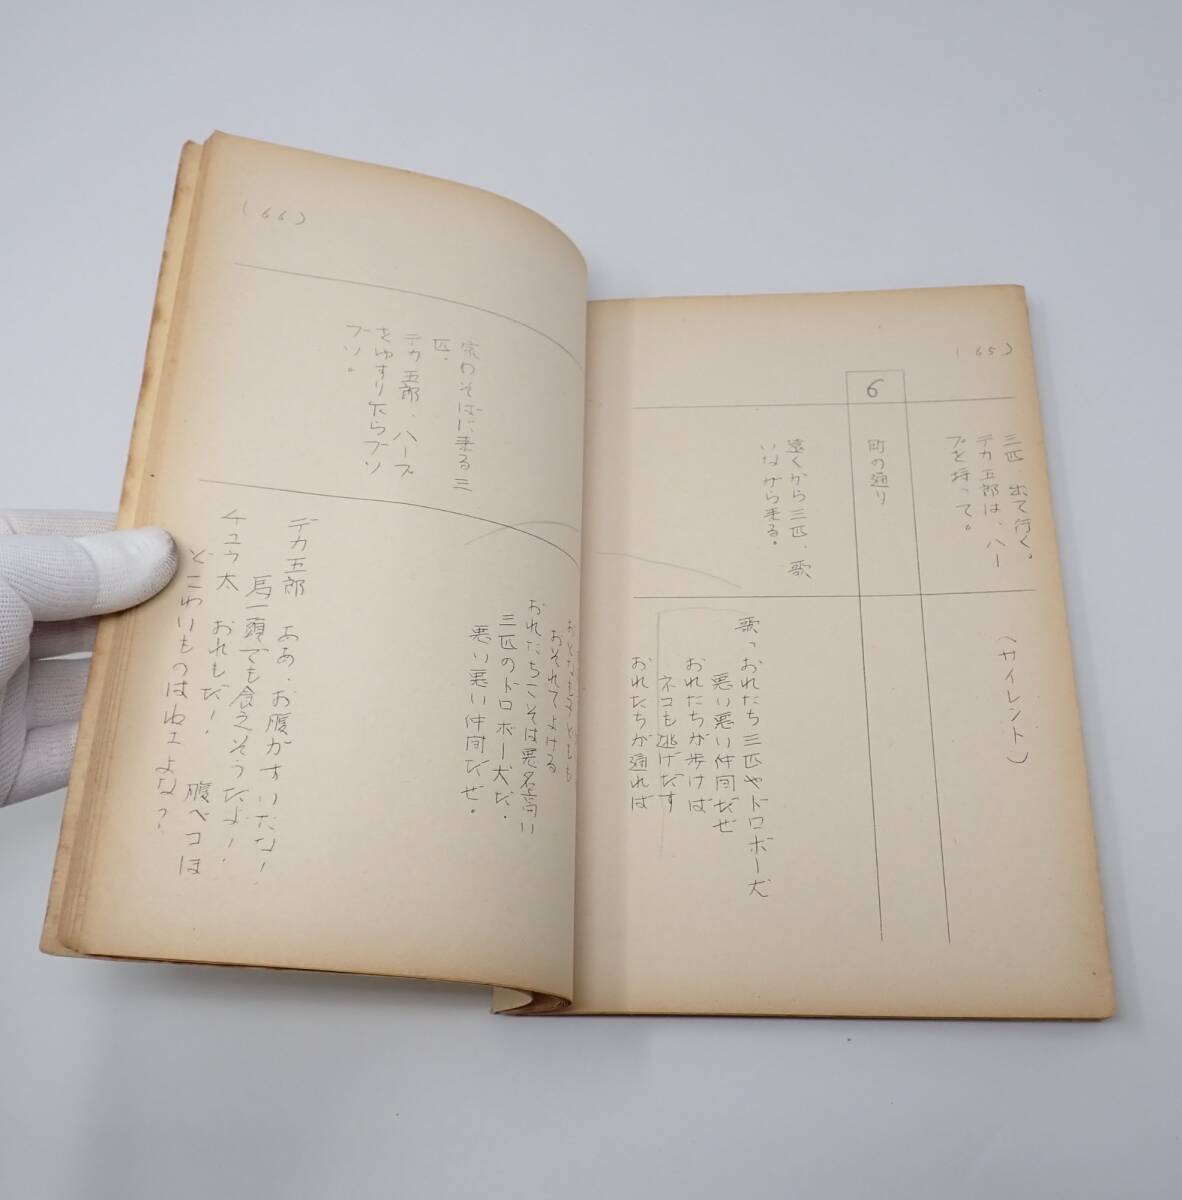 (65)
三匹、出て行く。
デカ五郎は、ハー
プを持って。
(サイレント)
6
町の通り
遠くから三匹、歌
いながら来る。
歌っおれたち三匹やドロボー犬
悪い悪い仲間だぜ
おれたちが歩けば
ネコも逃げだす
おれたちが通れば
(66)
おとなも子どもも
おそれてよける
おれたちこそは悪名高い
三匹のドロボー犬だ.
悪い悪い仲間だぜ。
そばに来る三
匹.
デカ五郎、ハープ
をゆすりたらブソ
ブソ。
デカ五郎 ああ.お腹がすいたな!
馬一頭でも食えそうだよ!
チュウ太 おれもだ! 腹ペコほ
どこわいものはねェよな?